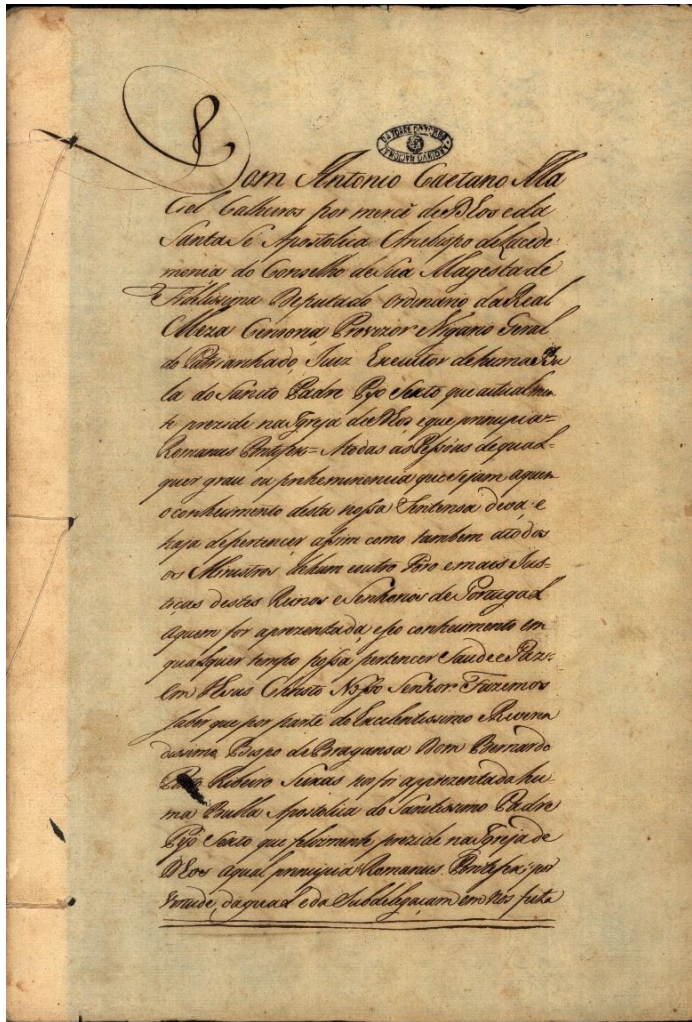 TORRE DO TOMBO
ARQUIVO NACIONAL
Dom Antonio Caetano Ma
ciel Calheiros por mercê de Deos e da
Santa Sé Apostolica Arcebispo de Lacede-
monia do Conselho de Sua Magestade
Fidelissima Deputado Ordinario da Real
Meza Cençoria Provizor e Vigario Geral
do Patriarchado, Juiz Executor de huma Bu
la do Sancto Padre Pio Sexto que actualmen
te prezide na Igreja de Deos, e que principia=
Romanus Pontifex= A todas as Pessoas de qual-
quer grau ou preheminencia que sejam a quem
o conhecimento desta nossa Sentensa deva e
haja de pertencer assim como tambem a todos
os Ministros de hum e outro Foro e mais Jus-
tiças destes Reinos e Senhorios de Portugal
a quem for aprezentada, e seo conhecimento em
qualquer tempo possa pertencer Saude e Paz-
em Jezus Christo Nosso Senhor Fazemos
saber que por parte do Excelentissimo e Reveren
dissimo Bispo de Bragansa Dom Bernardo
Pinto Ribeiro Seixas nos foi apprezentada hu
ma Bulla Apostolica do Santissimo Padre
Pio Sexto que felizmente prezide na Igreja de
Deos a qual principia Romanus Pontifex, por
virtude da qual e da Subdelegaçam em nós feita